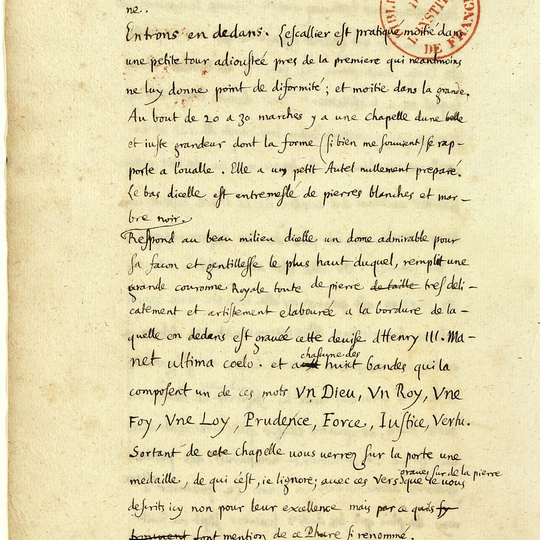 ne.
Entrons en dedans. L'escallier est pratiqué moitié dans
une petite tour adioustée pres de la premiere qui neantmoins
ne luy donne point de diformité; et moitié dans la grande.
Au bout de 20 a 30 marches y a une chapelle dune belle
et iuste grandeur dont la forme (si bien me souvient) se rap-
porte a l'oualle. Elle a un petit Autel nullement preparé.
Le bas dicelle est entremeslé de pierres blanches et mar-
bre noir.
Respond au beau milieu dicelle un dome admirable pour
sa facon et gentillesse le plus haut duquel, remplit une
grande couronne Royale toute de pierre de taille tres deli-
catement et artistement elabourée a la bordure de la-
quelle en dedans est gravée cette devise dHenry III. Ma-
net ultima coelo. et a huict bandes qui la
chascune des
composent un de ces mots Vn Dieu, Vn Roy, Vne
Foy, Vne Loy, Prudence, Force, Iustice, Vertu.
Sortant de cete chapelle vous verrez sur la porte une
medaille, de qui c'est, ie lignore; avec ces vers que ie vous
gravés sur de la pierre
descrits icy non pour leur excellence mais par ce quils
font mention de ce Phare si renommé.
BLI
L'INSTITUT
DE FRANCE